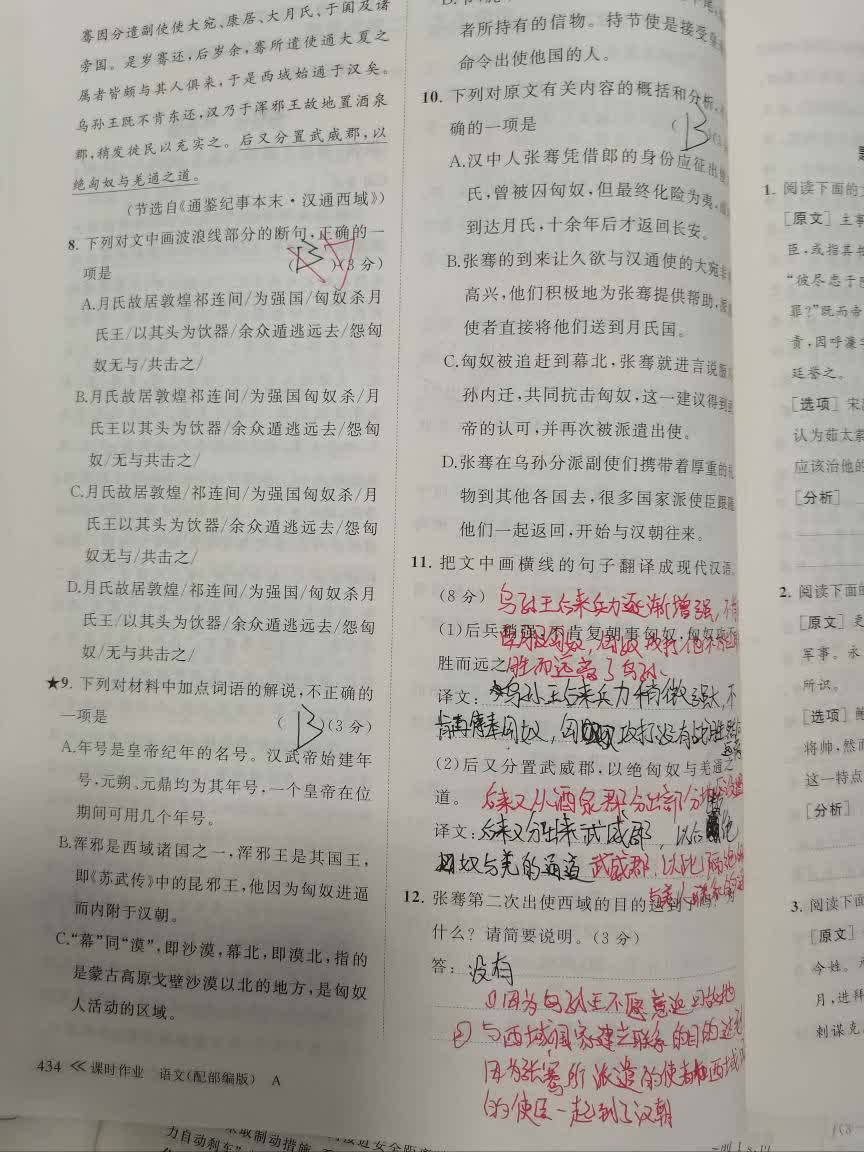 骞因分遣副使使大宛、康居、大月氏、于阗及诸
旁国。是岁骞还,后岁余,骞所遣使通大夏之
属者皆颇与其人俱来,于是西域始通于汉矣。
乌孙王既不肯东还,汉乃于浑邪王故地置酒泉
郡,稍发徙民以充实之。后又分置武威郡,以
绝匈奴与羌通之道。
(节选自《通鉴纪事本末·汉通西域》)
8. 下列对文中画波浪线部分的断句,正确的一
项是 (B)(3分)
A.月氏故居敦煌祁连间/为强国/匈奴杀月
氏王/以其头为饮器/余众遁逃远去/怨匈
奴无与/共击之/
B.月氏故居敦煌祁连间/为强国匈奴杀/月
氏王以其头为饮器/余众遁逃远去/怨匈
奴/无与共击之/
C.月氏故居敦煌/祁连间/为强国匈奴杀/月
氏王以其头为饮器/余众遁逃远去/怨匈
奴无与/共击之/
D.月氏故居敦煌/祁连间/为强国/匈奴杀月
氏王/以其头为饮器/余众遁逃远去/怨匈
奴/无与共击之/
★9. 下列对材料中加点词语的解说,不正确的
一项是 (B)(3分)
A.年号是皇帝纪年的名号。汉武帝始建年
号,元朔、元鼎均为其年号,一个皇帝在位
期间可用几个年号。
B.浑邪是西域诸国之一,浑邪王是其国王,
即《苏武传》中的昆邪王,他因为匈奴进逼
而内附于汉朝。
C.“幕”同“漠”,即沙漠,幕北,即漠北,指的
是蒙古高原戈壁沙漠以北的地方,是匈奴
人活动的区域。
434 ≪ 课时作业 语文(配部编版) A
者所持有的信物。持节使是接受
命令出使他国的人。
10. 下列对原文有关内容的概括和分析,
确的一项是 (B)
A.汉中人张骞凭借郎的身份应征出
氏,曾被囚匈奴,但最终化险为夷,
到达月氏,十余年后才返回长安。
B.张骞的到来让久欲与汉通使的大宛非
高兴,他们积极地为张骞提供帮助,派
使者直接将他们送到月氏国。
C.匈奴被追赶到幕北,张骞就进言说服
孙内迁,共同抗击匈奴,这一建议得到
帝的认可,并再次被派遣出使。
D.张骞在乌孙分派副使们携带着厚重的礼
物到其他各国去,很多国家派使臣跟随
他们一起返回,开始与汉朝往来。
11. 把文中画横线的句子翻译成现代汉语。
(8分) 乌孙王后来兵力逐渐增强,不肯
(1)后兵稍强,不肯复朝事匈奴,匈奴攻
胜而远之。胜而远离了乌孙
译文:乌孙王后来兵力稍微强大,不
肯再侍奉匈奴,匈奴攻打没有战胜
(2)后又分置武威郡,以绝匈奴与羌通之
道。 后来又从酒泉郡分出部分地
译文:后来又分出来武威郡,以后绝
匈奴与羌的通道 武威郡,以此隔绝
12. 张骞第二次出使西域的目的达到了吗?为
什么?请简要说明。(3分)
答:没有
①因为乌孙王不愿意迁回故地
②与西域国家建立联系的目的达到
因为张骞所派遣的使者和西域
的使臣一起到了汉朝
1. 阅读下面的
[原文] 主事
臣,或指其
“彼尽忠于
罪?”既而帝
贵,因呼濂
廷誉之。
[选项] 宋
认为茹太素
应该治他的
[分析]
2. 阅读下面的
[原文]
军事。永
所识。
[选项]
将帅,然而
这一特点
[分析]
3. 阅读下面
[原文]
今姓。
月,进拜
刺谋克